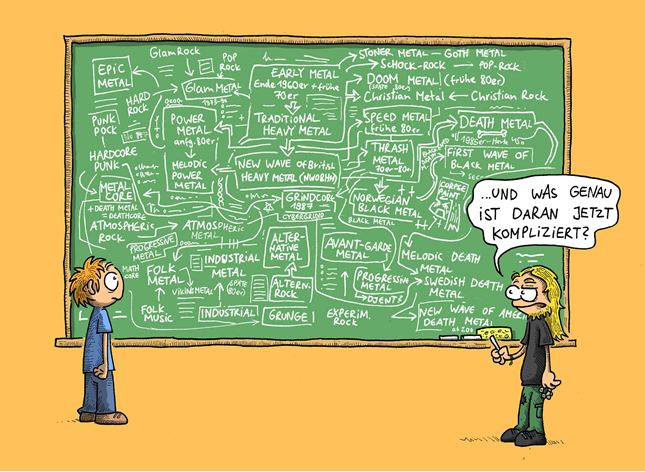 GlamRock
POP
ROCK
EPIC
METAL
GLAM METAL
1973-90
HARD
ROCK
PUNK
ROCK
HARDCORE
PUNK
METAL
CORE
+DEATH METAL
=DEATHCORE
EARLY METAL
Ende 1960er + frühe
70er
TRADITIONAL
HEAVY METAL
POWER
METAL
anfg. 80er
MELODIC
POWER
METAL
NEW WAVE OF British
HEAVY METAL (NWOBHM)
GRINDCORE
1987
CYBERGRIND
STONER METAL
GOTH METAL
SCHOCK-ROCK
POP-ROCK
DOOM METAL (frühe 80er)
Christian Metal
Christian Rock
SPEED METAL
(frühe 80er)
THRASH
METAL
70er-80er
DEATH METAL
FIRST WAVE OF
BLACK METAL
CORPSE
PAINT
NORWEGIAN
BLACK METAL
BLACK METAL
ATMOSPHERIC
ROCK
ATMOSPHERIC
METAL
PROGRESSIVE
METAL
MATH
CORE
FOLK
METAL
VIKINGMETAL
FOLK
MUSIC
INDUSTRIAL
METAL
INDUSTRIAL
ALTER-
NATIVE
METAL
ALTERN.
ROCK
GRUNGE
AVANT-GARDE
METAL
PROGRESSIVE
METAL
DJENT
EXPERIM.
ROCK
MELODIC DEATH
METAL
SWEDISH DEATH
METAL
NEW WAVE OF AMERI
DEATH METAL
...UND WAS GENAU
IST DARAN JETZT
KOMPLIZIERT?